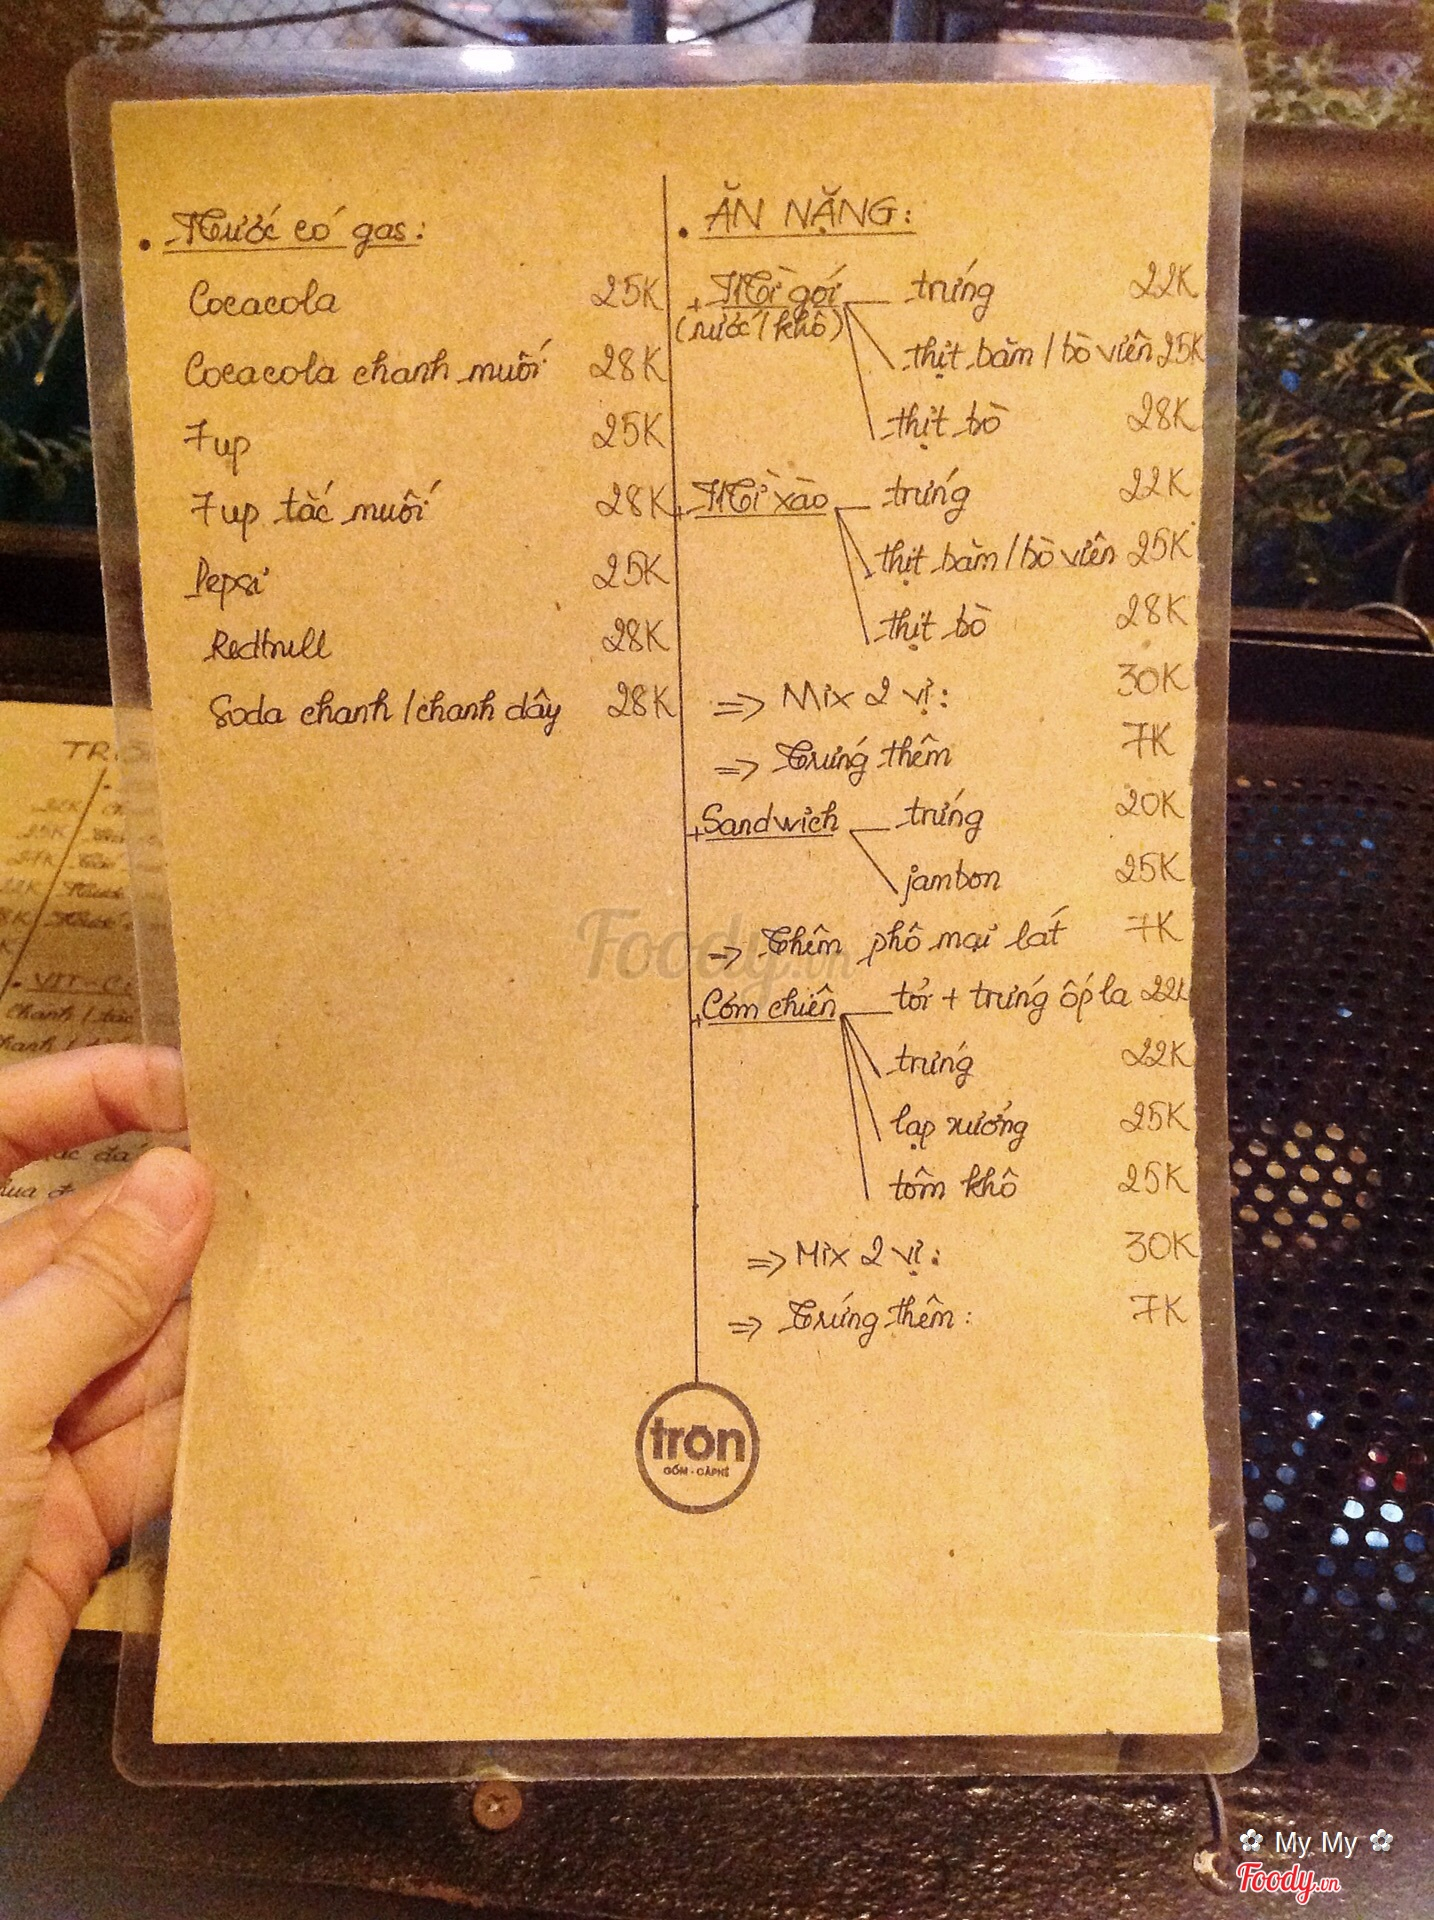 • Nước có gas:
Cocacola 25K
Cocacola chanh muối 28K
7up 25K
7up tắc muối 28K
Pepsi 25K
Redbull 28K
Soda chanh / chanh dây 28K
• ĂN NẶNG:
+ Mì gói trứng 22K
(nước / khô)
thịt bằm / bò viên 25K
thịt bò 28K
+ Mì xào trứng 22K
thịt bằm / bò viên 25K
thịt bò 28K
=> Mix 2 vị: 30K
=> Trứng thêm 7K
+ Sandwich trứng 20K
jambon 25K
=> Thêm phô mai lát 7K
+ Cơm chiên tỏi + trứng ốp la 22K
trứng 22K
lạp xưởng 25K
tôm khô 25K
=> Mix 2 vị: 30K
=> Trứng thêm: 7K
tròn
GỐM - CÀPHÊ
Foody.vn
✿ My My ✿
Foody.vn